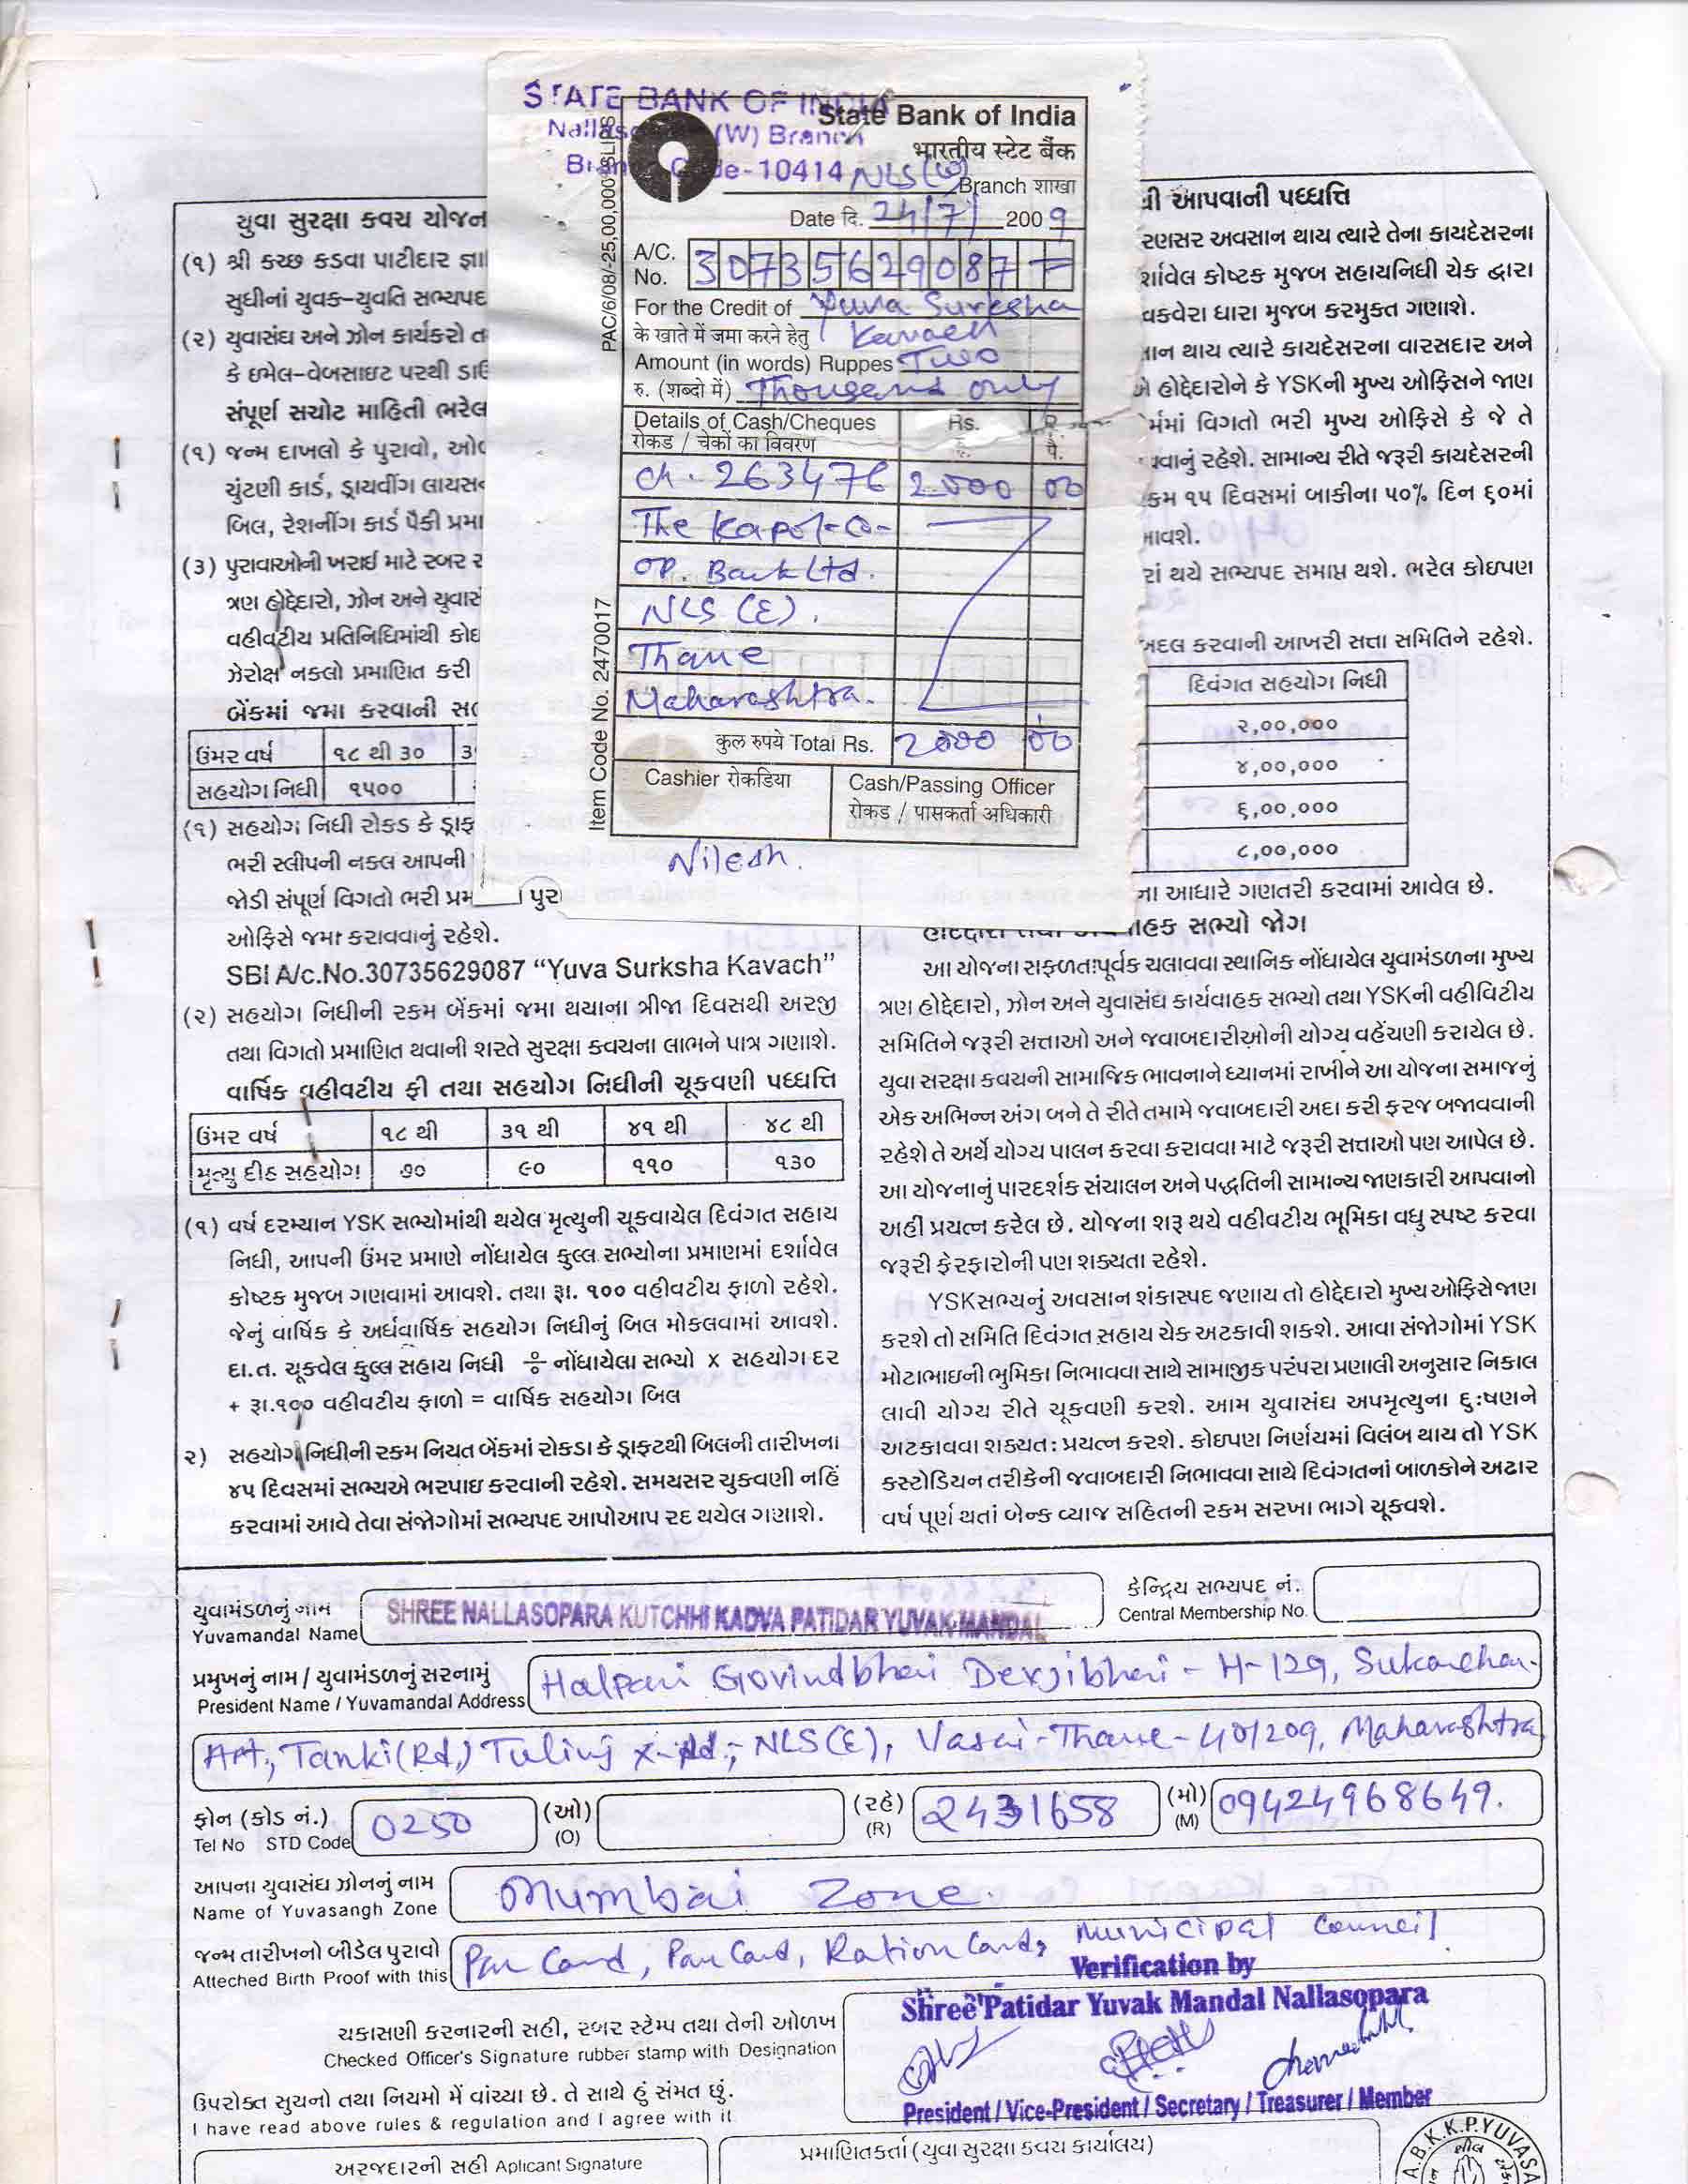 STATE BANK OF INDIA
(W) Branch
10414
State Bank of India
भारतीय स्टेट बैंक
NLS (W) Branch शाखा
Date दि. 24/7/ 2009
A/C. No. 30735629087
For the Credit of Yuva Surksha
के खाते में जमा करने हेतु Kavach
Amount (in words) Ruppes Two
रु. (शब्दो में) Thousand only
Details of Cash/Cheques Rs.
रोकड / चेकों का विवरण पै.
Ch. 263476 2000 00
The Kapol-Co-
OP. Bank Ltd.
NLS (E).
Thane
Maharashtra.
कुल रुपये Total Rs. 2000 00
Cashier रोकडिया
Cash/Passing Officer
रोकड / पासकर्ता अधिकारी
Nilesh.
PAC/6/08/-25,00,000-SLIPS
Item Code No. 2470017
યુવા સુરક્ષા કવચ યોજન
(૧) શ્રી કચ્છ કડવા પાટીદાર જ્ઞા
સુધીનાં યુવક-યુવતિ સભ્યપદ
(૨) યુવાસંઘ અને ઝોન કાર્યકરો ત
કે ઇમેલ-વેબસાઇટ પરથી ડાઉ
સંપૂર્ણ સચોટ માહિતી ભરેલ
(૧) જન્મ દાખલો કે પુરાવો, ઓળ
ચુંટણી કાર્ડ, ડ્રાયવીંગ લાયસન
બિલ, રેશનીંગ કાર્ડ પૈકી પ્રમા
(૩) પુરાવાઓની ખરાઈ માટે રબર સ
ત્રણ હોદ્દેદારો, ઝોન અને યુવાસ
વહીવટીય પ્રતિનિધિમાંથી કોઇ
ઝેરોક્ષ નકલો પ્રમાણિત કરી
બેંકમાં જમા કરવાની સ
ઉંમર વર્ષ ૧૮ થી ૩૦
સહયોગ નિધી ૧૫૦૦
(૧) સહયોગ નિધી રોકડ કે ડ્રાફ
ભરી સ્લીપની નકલ આપની
જોડી સંપૂર્ણ વિગતો ભરી પ્રમ પુર
ઓફિસે જમા કરાવવાનું રહેશે.
SBI A/c.No.30735629087 “Yuva Surksha Kavach”
(૨) સહયોગ નિધીની રકમ બેંકમાં જમા થયાના ત્રીજા દિવસથી અરજી
તથા વિગતો પ્રમાણિત થવાની શરતે સુરક્ષા કવચના લાભને પાત્ર ગણાશે.
વાર્ષિક વહીવટીય ફી તથા સહયોગ નિધીની ચૂકવણી પધ્ધતિ
ઉંમર વર્ષ ૧૮ થી ૩૧ થી ૪૧ થી ૪૮ થી
મૃત્યુ દીઠ સહયોગ ૭૦ ૯૦ ૧૧૦ ૧૩૦
(૧) વર્ષ દરમ્યાન YSK સભ્યોમાંથી થયેલ મૃત્યુની ચૂકવાયેલ દિવંગત સહાય
નિધી, આપની ઉંમર પ્રમાણે નોંધાયેલ કુલ્લ સભ્યોના પ્રમાણમાં દર્શાવેલ
કોષ્ટક મુજબ ગણવામાં આવશે. તથા રૂા. ૧૦૦ વહીવટીય ફાળો રહેશે.
જેનું વાર્ષિક કે અર્ધવાર્ષિક સહયોગ નિધીનું બિલ મોકલવામાં આવશે.
દા.ત. ચૂકવેલ કુલ્લ સહાય નિધી ÷ નોંધાયેલા સભ્યો x સહયોગ દર
+ રૂા.૧૦૦ વહીવટીય ફાળો = વાર્ષિક સહયોગ બિલ
૨) સહયોગ નિધીની રકમ નિયત બેંકમાં રોકડા કે ડ્રાફટથી બિલની તારીખના
૪૫ દિવસમાં સભ્યએ ભરપાઇ કરવાની રહેશે. સમયસર ચુકવણી નહિં
કરવામાં આવે તેવા સંજોગોમાં સભ્યપદ આપોઆપ રદ થયેલ ગણાશે.
ી આપવાની પધ્ધતિ
રણસર અવસાન થાય ત્યારે તેના કાયદેસરના
ર્શાવેલ કોષ્ટક મુજબ સહાયનિધી ચેક દ્વારા
વકવેરા ધારા મુજબ કરમુક્ત ગણાશે.
ાન થાય ત્યારે કાયદેસરના વારસદાર અને
ે હોદ્દેદારોને કે YSKની મુખ્ય ઓફિસને જાણ
ર્મમાં વિગતો ભરી મુખ્ય ઓફિસે કે જે તે
વવાનું રહેશે. સામાન્ય રીતે જરૂરી કાયદેસરની
કમ ૧૫ દિવસમાં બાકીના ૫૦% દિન ૬૦માં
આવશે.
રાં થયે સભ્યપદ સમાપ્ત થશે. ભરેલ કોઇપણ
બદલ કરવાની આખરી સત્તા સમિતિને રહેશે.
દિવંગત સહયોગ નિધી
૨,૦૦,૦૦૦
૪,૦૦,૦૦૦
૬,૦૦,૦૦૦
૮,૦૦,૦૦૦
ના આધારે ગણતરી કરવામાં આવેલ છે.
વાહક સભ્યો જોગ
આ યોજના સફળતાપૂર્વક ચલાવવા સ્થાનિક નોંધાયેલ યુવામંડળના મુખ્ય
ત્રણ હોદ્દેદારો, ઝોન અને યુવાસંઘ કાર્યવાહક સભ્યો તથા YSKની વહીવિટીય
સમિતિને જરૂરી સત્તાઓ અને જવાબદારીઓની યોગ્ય વહેંચણી કરાયેલ છે.
યુવા સરક્ષા કવચની સામાજિક ભાવનાને ધ્યાનમાં રાખીને આ યોજના સમાજનું
એક અભિન્ન અંગ બને તે રીતે તમામે જવાબદારી અદા કરી ફરજ બજાવવાની
રહેશે તે અર્થે યોગ્ય પાલન કરવા કરાવવા માટે જરૂરી સત્તાઓ પણ આપેલ છે.
આ યોજનાનું પારદર્શક સંચાલન અને પદ્ધતિની સામાન્ય જાણકારી આપવાનો
અહી પ્રયત્ન કરેલ છે. યોજના શરૂ થયે વહીવટીય ભૂમિકા વધુ સ્પષ્ટ કરવા
જરૂરી ફેરફારોની પણ શક્યતા રહેશે.
YSKસભ્યનું અવસાન શંકાસ્પદ જણાય તો હોદ્દેદારો મુખ્ય ઓફિસે જાણ
કરશે તો સમિતિ દિવંગત સહાય ચેક અટકાવી શકશે. આવા સંજોગોમાં YSK
મોટાભાઇની ભુમિકા નિભાવવા સાથે સામાજીક પરંપરા પ્રણાલી અનુસાર નિકાલ
લાવી યોગ્ય રીતે ચૂકવણી કરશે. આમ યુવાસંઘ અપમૃત્યુના દુઃષણને
અટકાવવા શક્યતઃ પ્રયત્ન કરશે. કોઇપણ નિર્ણયમાં વિલંબ થાય તો YSK
કસ્ટોડિયન તરીકેની જવાબદારી નિભાવવા સાથે દિવંગતનાં બાળકોને અઢાર
વર્ષ પૂર્ણ થતાં બેન્ક વ્યાજ સહિતની રકમ સરખા ભાગે ચૂકવશે.
યુવામંડળનું નામ
Yuvamandal Name
SHREE NALLASOPARA KUTCHHI KADVA PATIDAR YUVAK MANDAL
કેન્દ્રિય સભ્યપદ નં.
Central Membership No.
પ્રમુખનું નામ / યુવામંડળનું સરનામું
President Name / Yuvamandal Address
Halpani Govindbhai Devjibhai - H-129, Sukanchan
APt., Tanki (Rd,) Tulinj x-Rd-, NLS (E), Vasai-Thane-401209, Maharashtra
ફોન (કોડ નં.) (ઓ) (રહે) (મો)
Tel No STD Code 0250 (O) (R) 2431658 (M) 09424968649.
આપના યુવાસંઘ ઝોનનું નામ
Name of Yuvasangh Zone
Mumbai Zone.
જન્મ તારીખનો બીડેલ પુરાવો
Atteched Birth Proof with this
Pan Card, Pan Card, Ration Card, Municipal Council
Verification by
Shree Patidar Yuvak Mandal Nallasopara
ચકાસણી કરનારની સહી, રબર સ્ટેમ્પ તથા તેની ઓળખ
Checked Officer's Signature rubber stamp with Designation
President / Vice-President / Secretary / Treasurer / Member
ઉપરોક્ત સુચનો તથા નિયમો મેં વાંચ્યા છે. તે સાથે હું સંમત છું.
I have read above rules & regulation and I agree with it
અરજદારની સહી Aplicant Signature
પ્રમાણિતકર્તા (યુવા સુરક્ષા કવચ કાર્યાલય)
A.B.K.K.P.YUVASA
શીલ